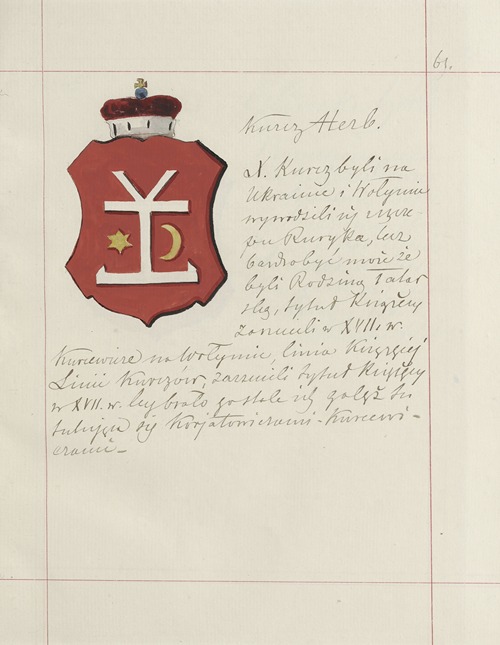 61.
Kurcz Herb.
X. Kurcz byli na
Ukrainie i Wołyniu
wywodzili się
Ruryka, lecz
bardzo być może że
byli Rodziną tatar
ską, tytuł Książęcy
zarzucili w XVII. w.
Kurcewicze na Wołyniu, linia Książęcej
Linii Kurczów, zarzucili tytuł Książęcy
w XVII. w.
tułując się Korjatowiczami-Kurcewi-
czami-